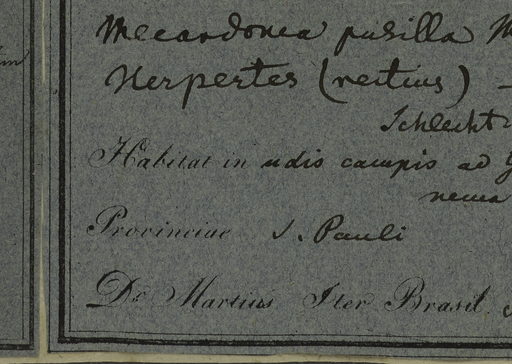 Mecardonia pusilla M
Herpertes (rectius) –
Schlecht
Habitat in udis campis ad
Provinciae S. Pauli
Dr. Martius Iter Brasil.